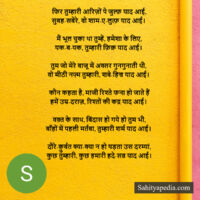 फ़िर तुम्हारी आरिज़ों पे ज़ुल्फ़ याद आई,
सुबह-सवेरे, वो शाम-ए-लुत्फ़ याद आई।
मैं भूल चुका था तुम्हें, हमेशा के लिए,
यक-ब-यक, तुम्हारी फ़िक्र याद आई।
तुम जो मेरे बाजू में अक्सर गुनगुनाती थी,
वो मीठी नज़्म तुम्हारी, याद आई।
कौन कहता है, माजी रिश्ते फना हो जाते हैं
हमें उम्र-दराज़, रिश्तों की कद्र याद आई।
वक़्त के साथ, बिंदास हो गये हो तुम भी,
बाँहों में पहली मर्तबा, तुम्हारी शर्म याद आई।
दौरे-कुर्बत क्या-क्या न हो चहता उस दरम्यां,
कुछ तुम्हारी, कुछ हमारी हदें-सब्र याद आई।
S
Sahityapedia.com